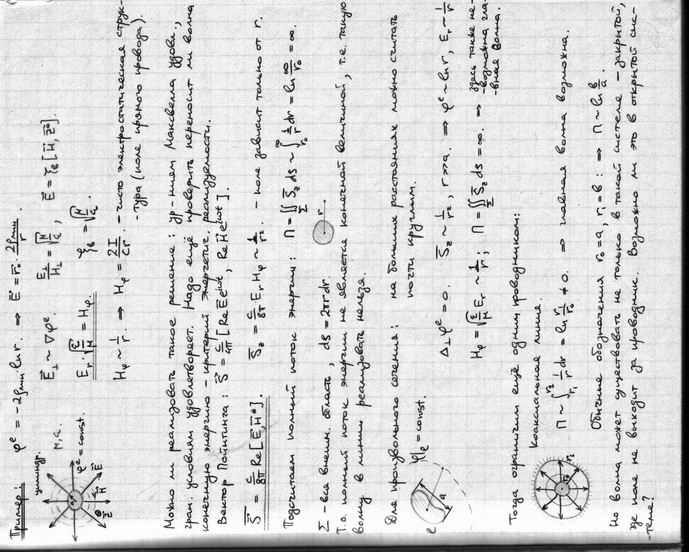 Пример: φᵉ = -2ρ_лин ln r. ⇒ E⃗ = r⃗₀ · 2ρ_лин / r
цилиндр.
μ, ε.
φᵉ = const.
E⃗_⊥ ~ ∇φᵉ E_⊥/H_⊥ = √(μ/ε), E⃗ = ζ_в [H⃗, z⃗⁰].
E_r √(ε/μ) = H_φ ζ_в = √(μ/ε).
H_φ ~ 1/r ⇒ H_φ = 2I/(cr). – чисто электростатическая струк-
-тура (поле прямого провода).
Можно ли реализовать такое решение: ур-ниям Максвелла удовл.,
гран. условиям удовлетворяет. Надо ещё проверить переносит ли волна
конечную энергию – критерий энергетич. реализуемости.
Вектор Пойнтинга: S⃗ = c/4π [Re E⃗e^{iωt}, Re H⃗e^{iωt}].
S̄⃗ = c/8π Re[E⃗, H⃗*]. S̄_z = c/8π E_r H_φ ~ 1/r². – поле зависит только от r.
Подсчитаем полный поток энергии: Π = ∬_Σ S̄_z ds ~ ∫_{r₀}^∞ 1/r dr = ln ∞/r₀ = ∞.
Σ – вся внешн. область, ds = 2πr dr.
Т.о. полный поток энергии не является конечной величиной, т.е. такую
волну в линии реализовать нельзя.
Для произвольного сечения: на больших расстояниях можно считать
почти круглым.
φ|_ℓ = const.
Δ_⊥φᵉ = 0. S̄_z ~ 1/r², r≫a. ⇒ φᵉ ~ ln r, E_r ~ 1/r
H_φ = √(ε/μ) E_r ~ 1/r; Π = ∬ S̄_z ds = ∞. ⇒ здесь также не-
-возможна гла-
-вная волна.
Тогда ограничим ещё одним проводником:
Коаксиальная линия.
Π ~ ∫_{r₁}^{r₂} 1/r dr = ln r₁/r₀ ≠ 0. ⇒ главная волна возможна.
Обычные обозначения r₀ = a, r₁ = b: ⇒ Π ~ ln b/a.
Но волна может существовать не только в такой системе – закрытой,
где поле не выходит за проводник. Возможно ли это в открытой сис-
-теме?